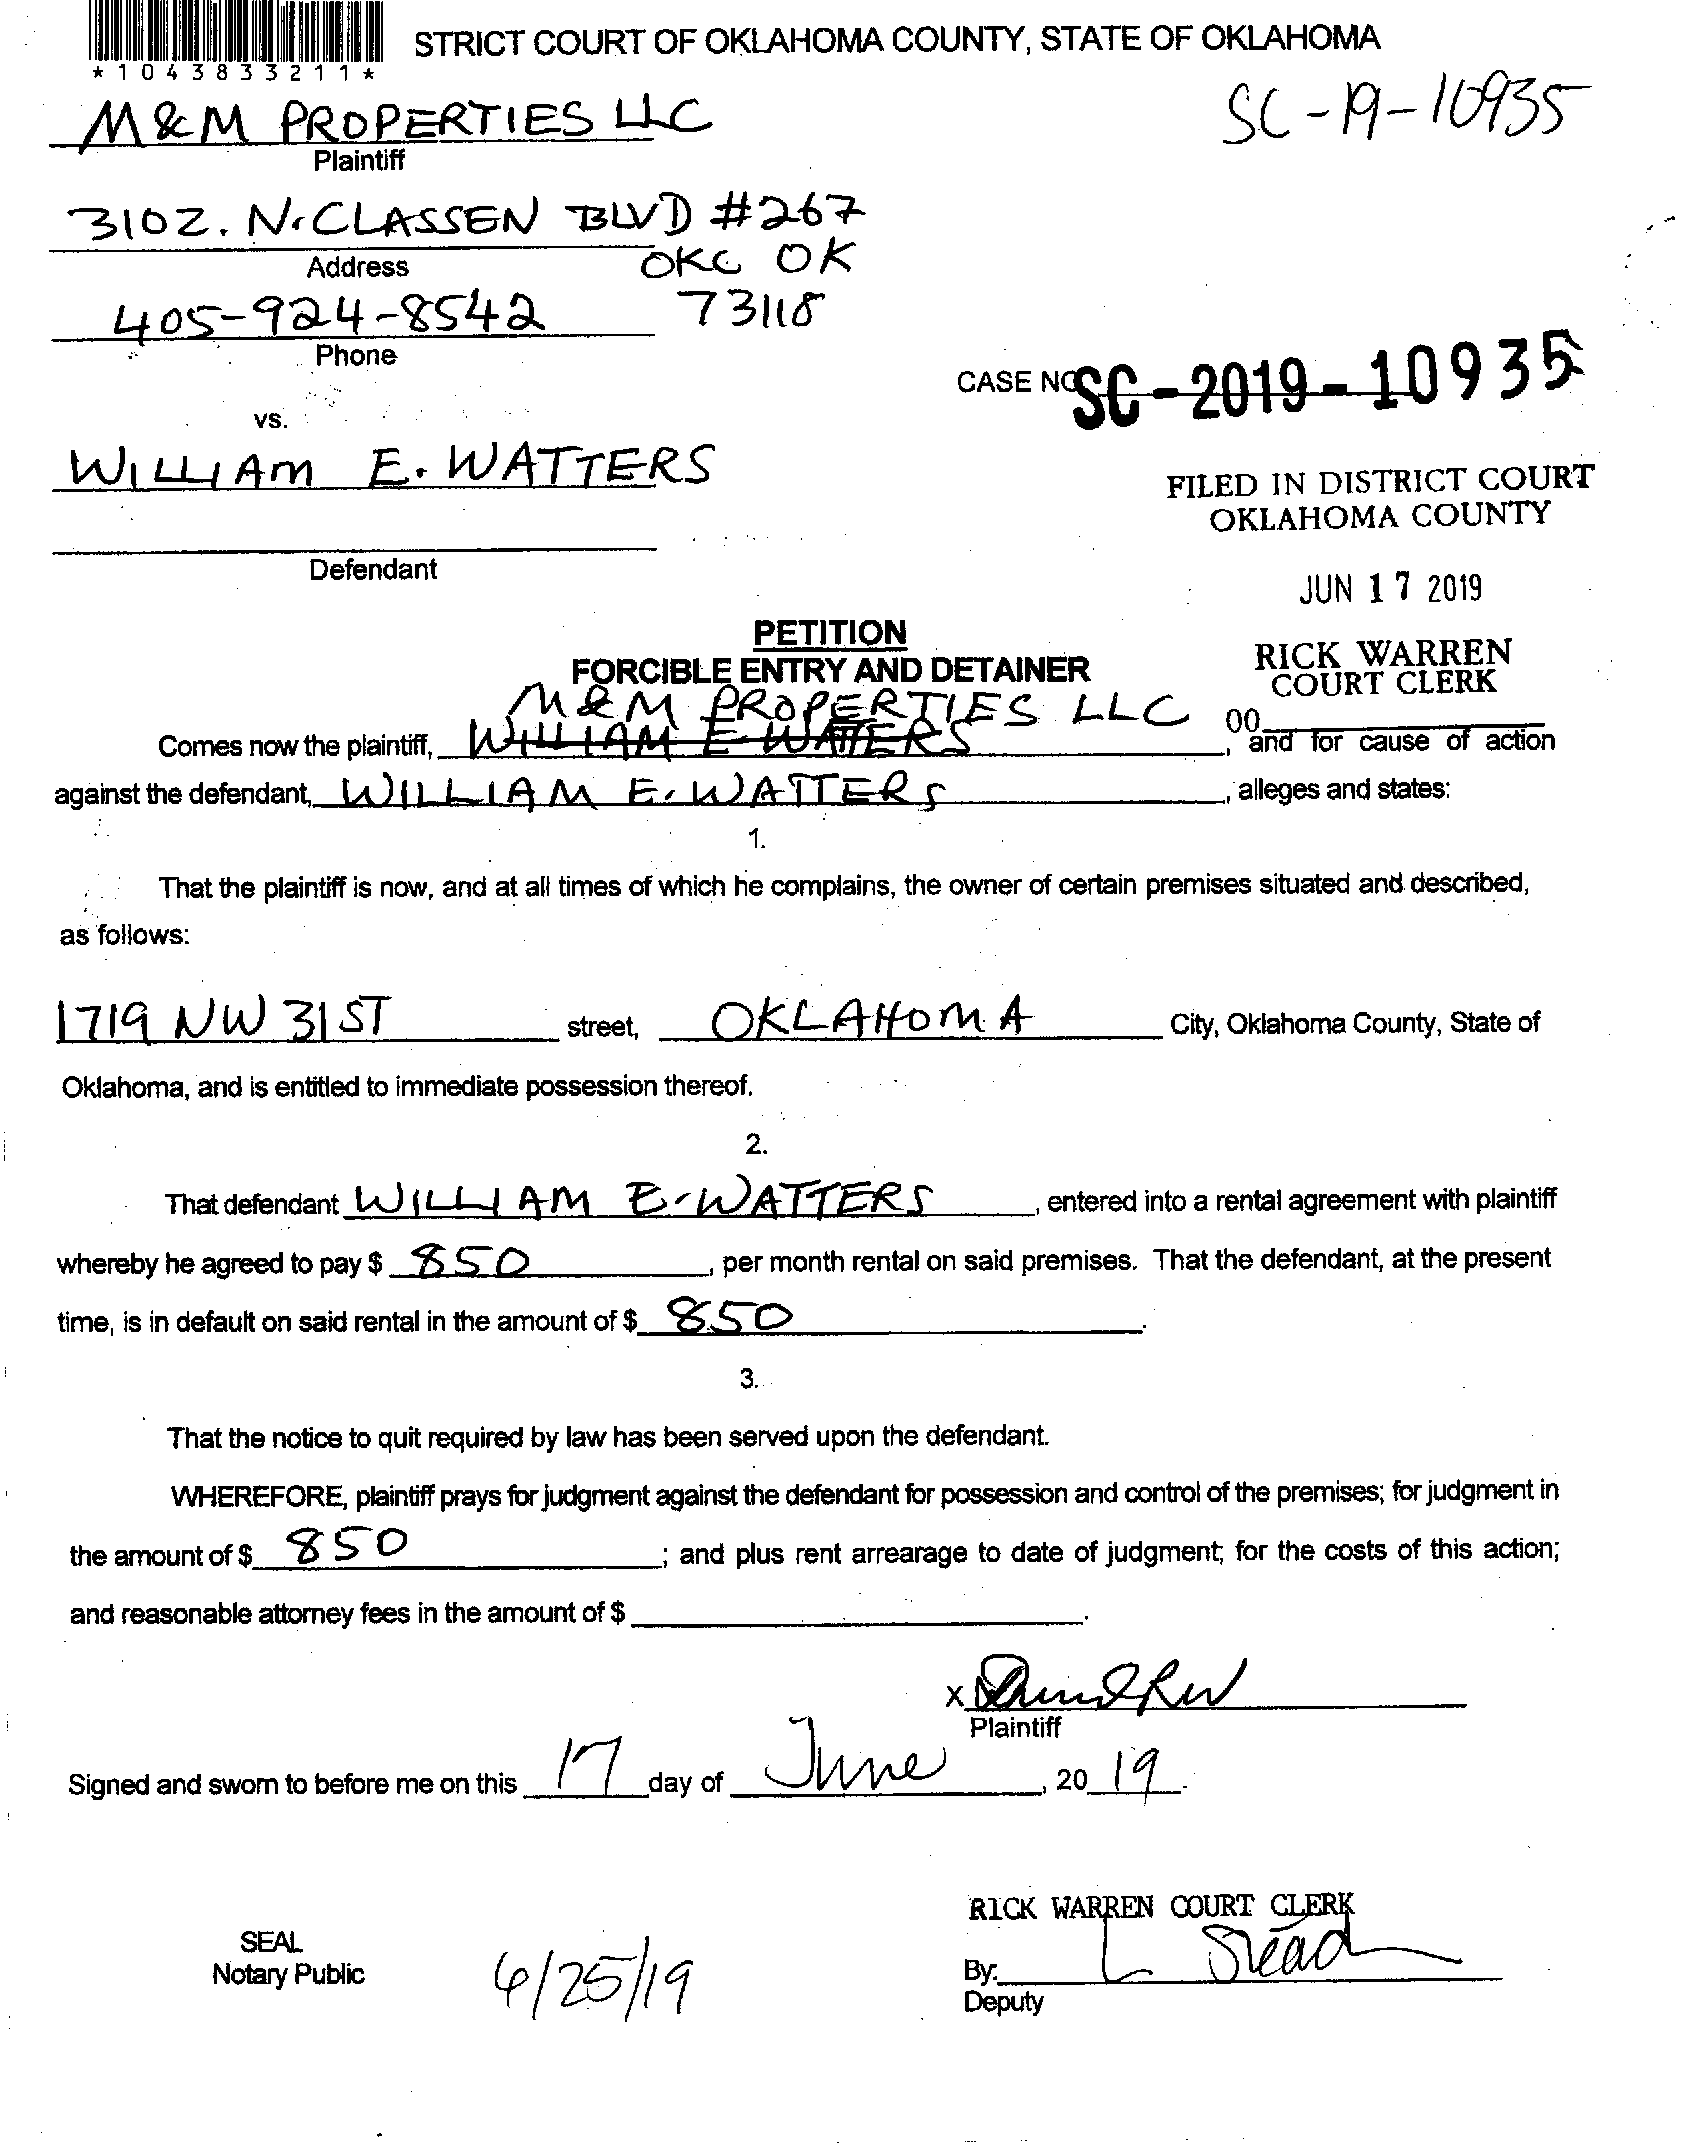 STRICT COURT OF OKLAHOMA COUNTY, STATE OF OKLAHOMA
*1043833211*
M&M PROPERTIES LLC
SC-19-10935
Plaintiff
3102. N. CLASSEN BLVD #267
Address
OKC OK
405-924-8542
73118
Phone
CASE NO SC-2019-10935
vs.
WILLIAM E. WATTERS
FILED IN DISTRICT COURT
OKLAHOMA COUNTY
Defendant
JUN 17 2019
PETITION
FORCIBLE ENTRY AND DETAINER
RICK WARREN
COURT CLERK
M&M PROPERTIES LLC
00
Comes now the plaintiff, WILLIAM E WATTERS, and for cause of action
against the defendant, WILLIAM E. WATTERS, alleges and states:
1.
That the plaintiff is now, and at all times of which he complains, the owner of certain premises situated and described,
as follows:
1719 NW 31ST street, OKLAHOMA City, Oklahoma County, State of
Oklahoma, and is entitled to immediate possession thereof.
2.
That defendant WILLIAM E. WATTERS, entered into a rental agreement with plaintiff
whereby he agreed to pay $ 850, per month rental on said premises. That the defendant, at the present
time, is in default on said rental in the amount of $ 850.
3.
That the notice to quit required by law has been served upon the defendant.
WHEREFORE, plaintiff prays for judgment against the defendant for possession and control of the premises; for judgment in
the amount of $ 850; and plus rent arrearage to date of judgment; for the costs of this action;
and reasonable attorney fees in the amount of $ .
X
Plaintiff
Signed and sworn to before me on this 17 day of June, 20 19.
RICK WARREN COURT CLERK
SEAL
Notary Public
6/25/19
By: L Stead
Deputy